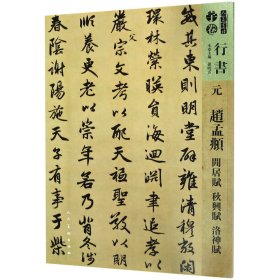 行書
元
趙孟頫
閑居賦 秋興賦 洛神賦
其東則明堂辟雍清穆敞閑
環林縈映員海迴淵聿追孝以
嚴父宗文考以配天祗聖敬以明
順養更老以崇年若乃背冬涉
春陰謝陽施天子有事于柴